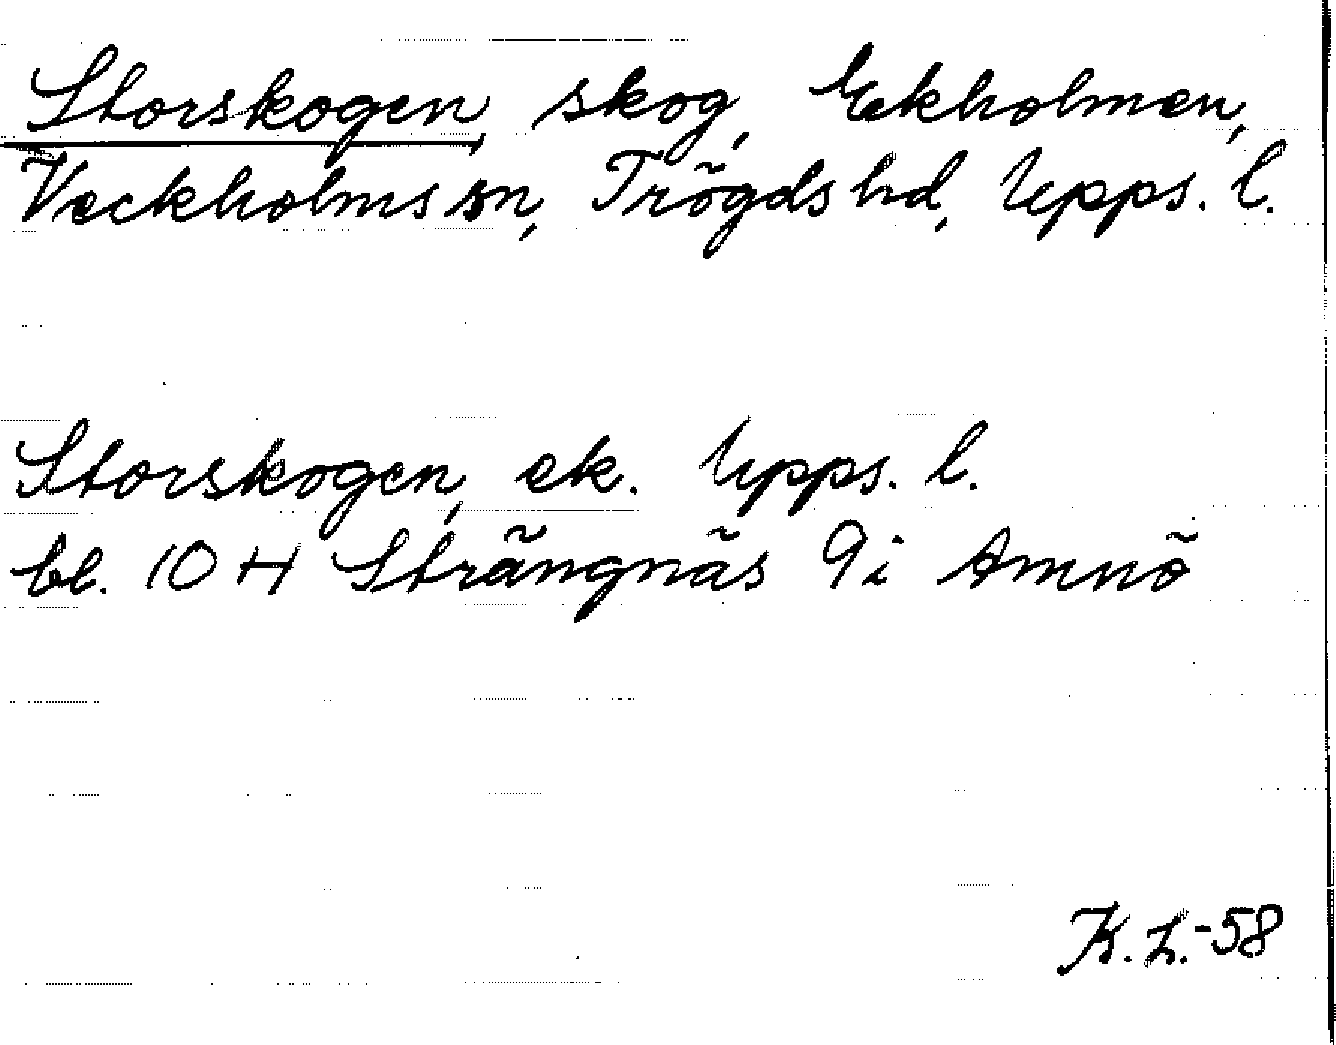 Storskogen, skog, Ekholmen,
Veckholms sn, Trögds hd, Upps. l.
Storskogen, ek. Upps. l.
bl. 10 H Strängnäs 9i Amnö
K. L. -58